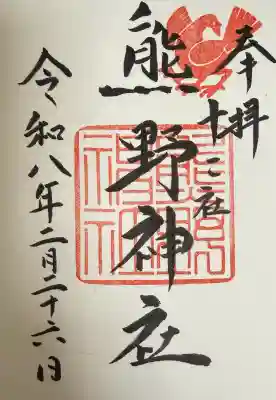 奉拝
十二社
熊野神社
令和八年二月二十六日
熊野神社